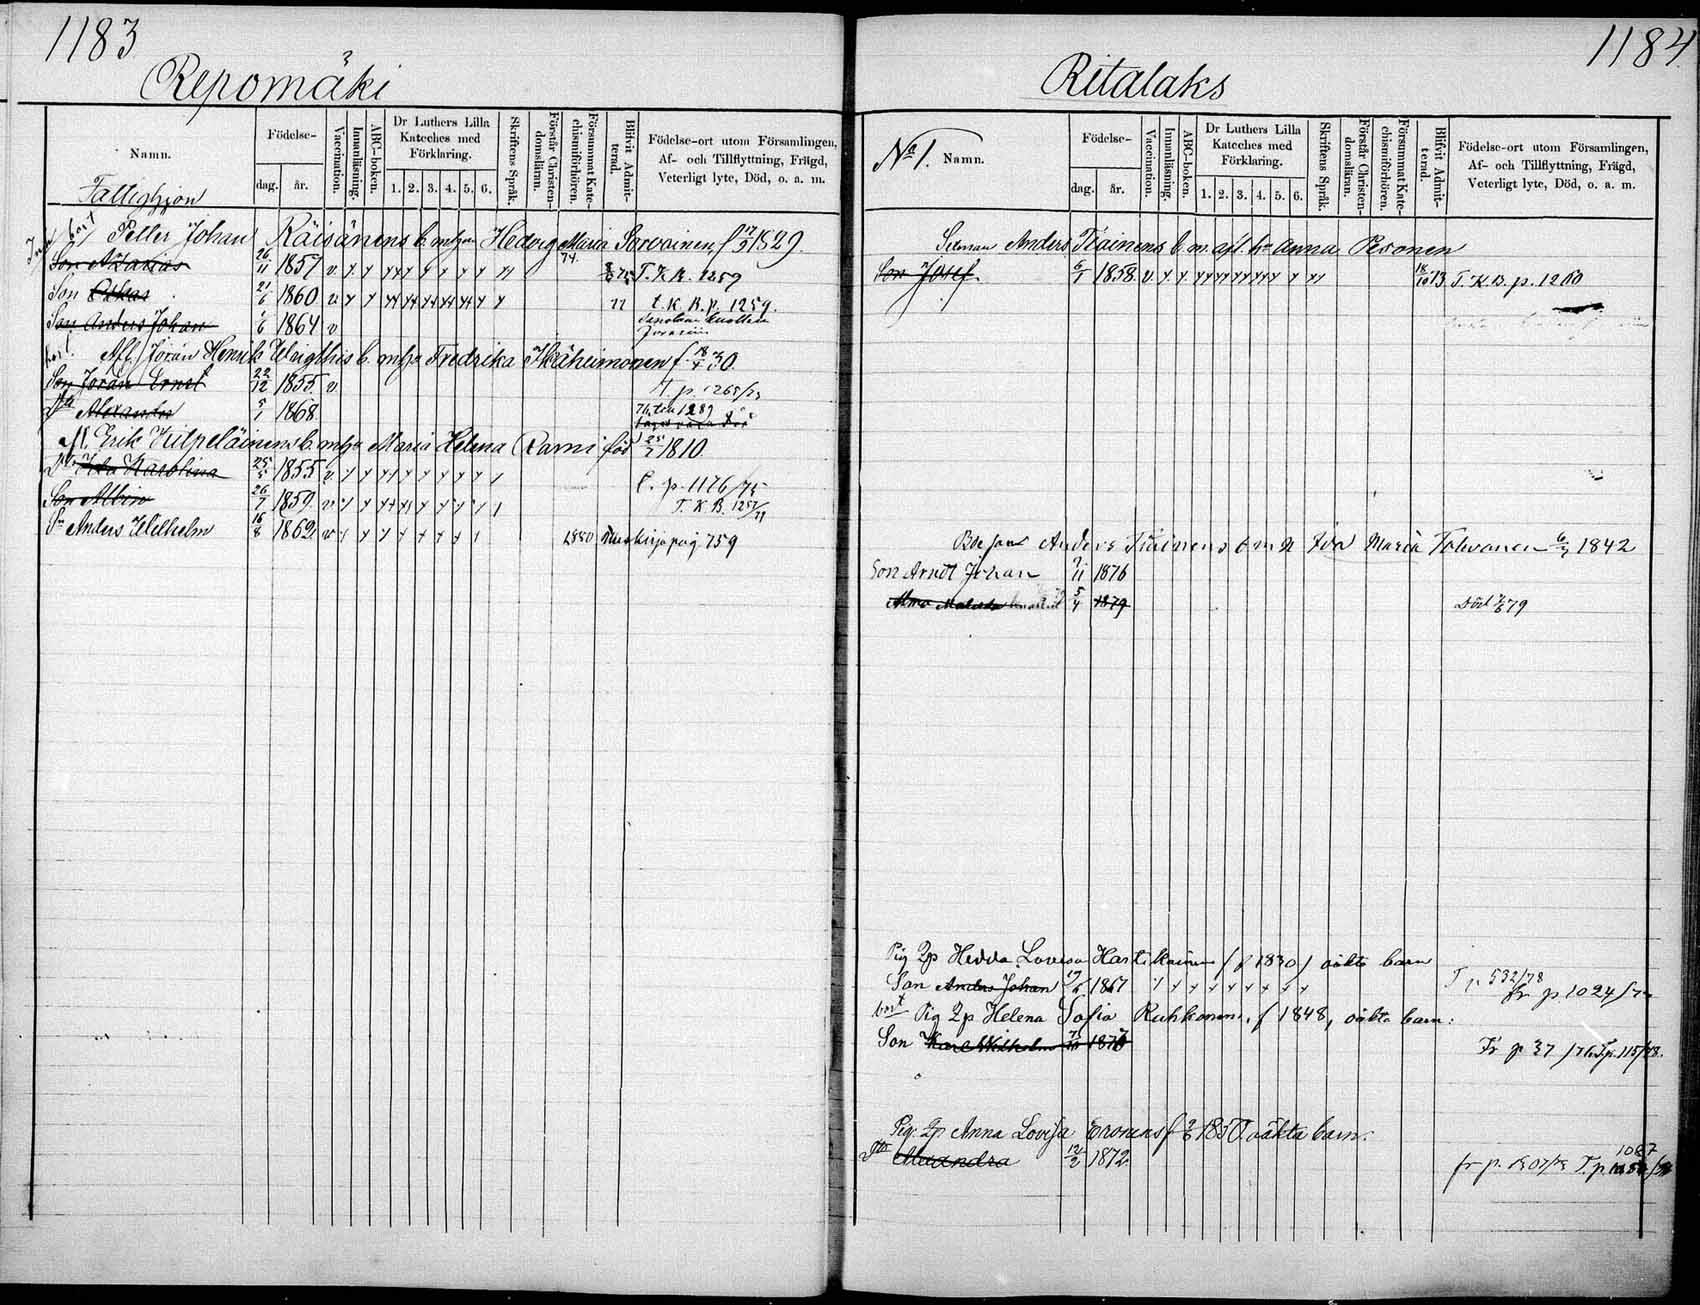 1183
Repomäki
Namn.
Födelse-
dag.
år.
Vaccination.
Innanläsning.
ABC-boken.
Dr Luthers Lilla
Kateches med
Förklaring.
1. 2. 3. 4. 5. 6.
Skriftens Språk.
Förstår Christen-
domsläran.
Försummat Kate-
chismiförhören.
Blifvit Admit-
terad.
Födelse-ort utom Församlingen,
Af- och Tillflyttning, Frägd,
Veterligt lyte, Död, o. a. m.
Fattighjon
bort Petter Johan Räisänens b. m h:n Hedvig Maria Sarvainen f 17/9 1829.
Son Azakias 26/11 1857 v. 74. 75 T. K. B. 1259
Son Oskar 21/6 1860 v. 77 t. K. B. p. 1259.
Son Anders Johan 1/6 1864 v
bort Afl. Jöran Henrik b. m h:a Fredrika Ikäheimonen f. 18/4 30.
Son Jöran Ernst 22/12 1855 v. T. p. 1265/73
Alexander 5/1 1868
Afl. Erik Hilpeläinens b. m h:a Maria Helena Rami föd 25/2 1810.
Dr Ida Karolina 25/5 1855 v. p. 1176/75
Son Albin 26/7 1859 v. T. K. B. 1257/77
Sn Anders Wilhelm 16/8 1862 v 1880 pag. 759
1184
Ritalaks
No 1. Namn.
Födelse-
dag.
år.
Vaccination.
Innanläsning.
ABC-boken.
Dr Luthers Lilla
Kateches med
Förklaring.
1. 2. 3. 4. 5. 6.
Skriftens Språk.
Förstår Christen-
domsläran.
Försummat Kate-
chismiförhören.
Blifvit Admit-
terad.
Födelse-ort utom Församlingen,
Af- och Tillflyttning, Frägd,
Veterligt lyte, Död, o. a. m.
Anders Tiainens b. m. afl. h:u Anna Pesonen
Son Josef 6/1 1858 v. 18/10 73 T. K. B. p. 1200
Anders Tiainens b m h Ida Maria Tolvanen 6/3 1842
Son Arndt Johan 1876
Alma 5/4 1879 Död 79
Pig 2p Hedda Lovisa Hartikainen (f 1830) oäkta barn
Son Anders Johan 1867 T p. 532/78
fr p 1024/
bort Pig 2p Helena Sofia Ruhkonen. f 1848, oäkta barn:
Son Karl Wilhelm 187 Fr p 37 p. 115/78.
Pig. 2p Anna Lovisa Eronens f 1850. oäkta barn.
Dtr Alexandra 12/2 1872. 1067
fr p. 1307/73 T. p.